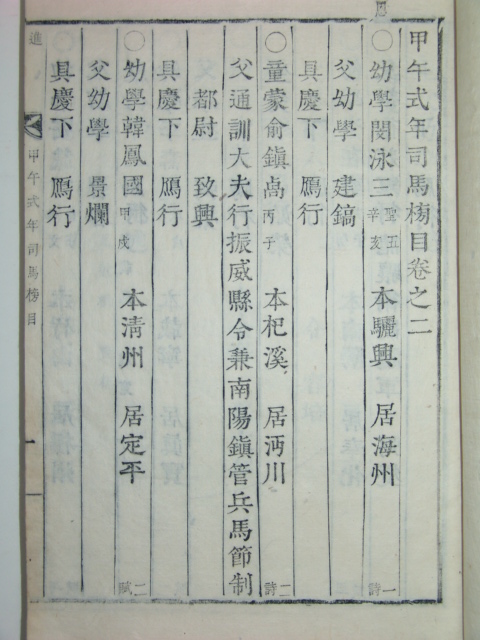 甲午式年司馬榜目卷之二
○幼學閔泳三 聖五 辛亥 本驪興 居海州 一詩
父幼學 建鎬
具慶下 鴈行
○童蒙俞鎭卨 丙子 本杞溪 居沔川 二詩
父通訓大夫行振威縣令兼南陽鎭管兵馬節制
都尉 致興
具慶下 鴈行
○幼學韓鳳國 甲戌 本淸州 居定平 二賦
父幼學 景爛
具慶下 鴈行
進 甲午式年司馬榜目 一